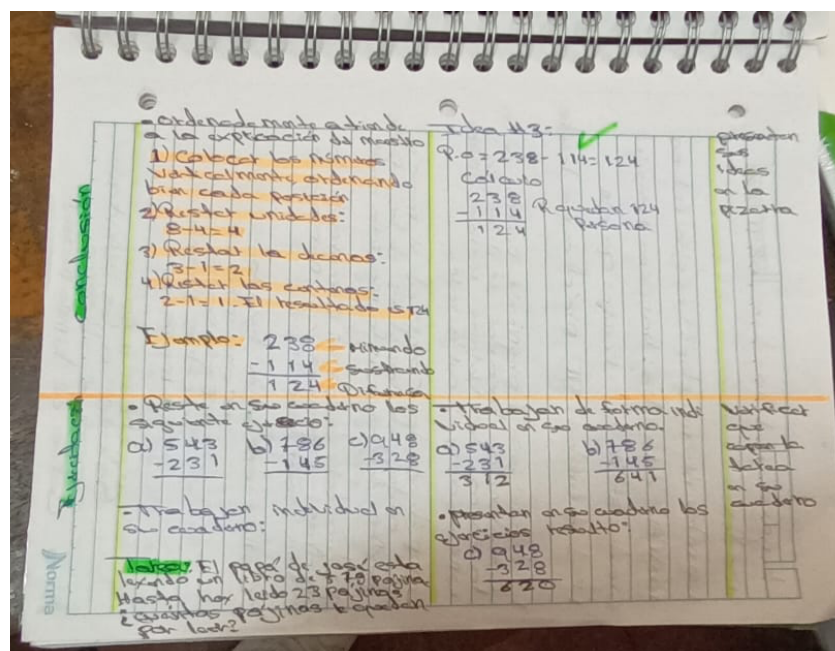 conclusión
• ordenadamente atiende
a la explicación del maestro
1) Colocar los números
verticalmente ordenando
bien cada posición
2) Restar unidades:
8-4=4
3) Restar la decenas:
3-1=2
4) Restar las centenas:
2-1=1. El resultado es 124
Ejemplo: 238 minuendo
-114 sustraendo
124 Diferencia
Idea #3:
P.O = 238 - 114 = 124
Calculo
238
-114
124
R quedan 124
persona
presentan
sus
ideas
en la
pizarra
• Reste en su cuaderno los
siguiente
a) 543 b) 786 c) 948
-231 -145 -328
• Trabajan individual en
su cuaderno:
Tarea: El papá de José esta
leyendo un libro de 778 página
Hasta hoy leido 23 páginas
¿cuántas páginas le quedan
por leer?
• Trabajan de forma indi
vidual en su cuaderno.
a) 543 b) 786
-231 -145
312 641
• presentan en su cuaderno los
ejercicios resuelto:
c) 948
-328
620
Verificar
que
copien la
tarea
en su
cuaderno
Norma